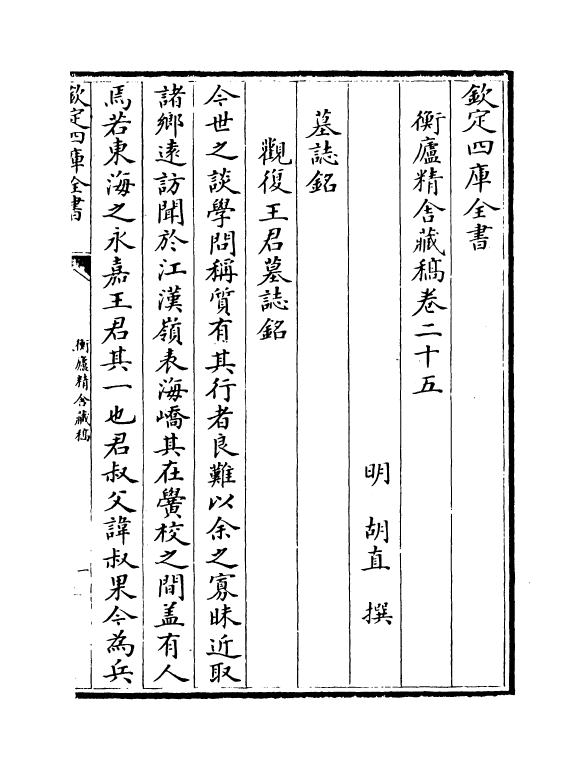 欽定四庫全書
衡廬精舍藏稿卷二十五
明　胡直　撰
墓誌銘
觀復王君墓誌銘
今世之談學問稱質有其行者良難以余之寡昧近取
諸鄉遠訪聞於江漢嶺表海嶠其在黌校之間盖有人
焉若東海之永嘉王君其一也君叔父諱叔果今為兵
欽定四庫全書
衡廬精舍藏稿
一